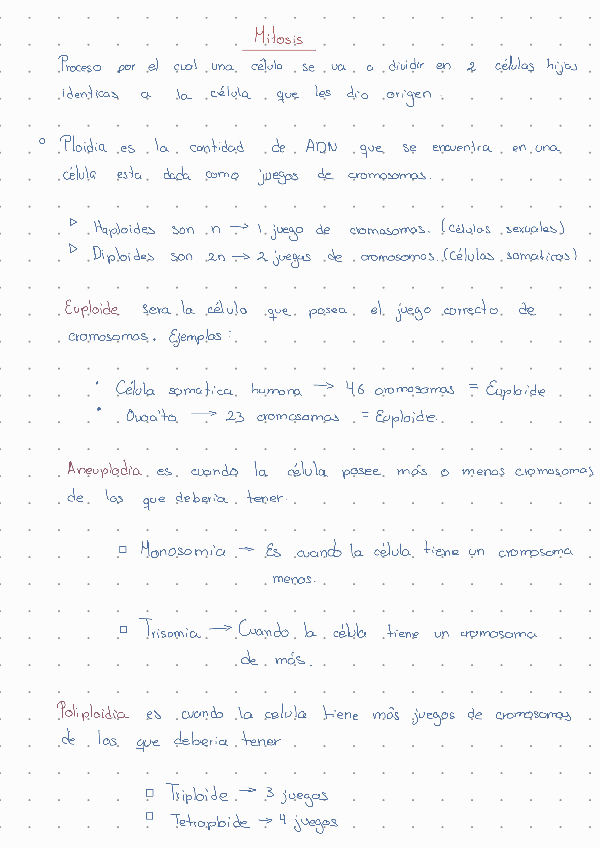 Mitosis
Proceso por el cual una célula se va a dividir en 2 células hijas
identicas a la célula que les dio origen.
Ploidia es la cantidad de ADN que se encuentra en una
célula esta dada como juegos de cromosomas.
▷ Haploides son n → 1 juego de cromosomas. (Células sexuales)
▷ Diploides son 2n → 2 juegos de cromosomas. (Células somaticas)
Euploide sera la célula que posea el juego correcto de
cromosomas. Ejemplos:
• Célula somatica humana → 46 cromosomas = Euploide
• Ovocito → 23 cromosomas = Euploide.
Aneuploidia es cuando la célula posee más o menos cromosomas
de los que deberia tener.
□ Monosomia → Es cuando la célula tiene un cromosoma
menos.
□ Trisomia → Cuando la célula tiene un cromosoma
de más.
Poliploidia es cuando la celula tiene más juegos de cromosomas
de los que deberia tener
□ Triploide → 3 juegos
□ Tetraploide → 4 juegos